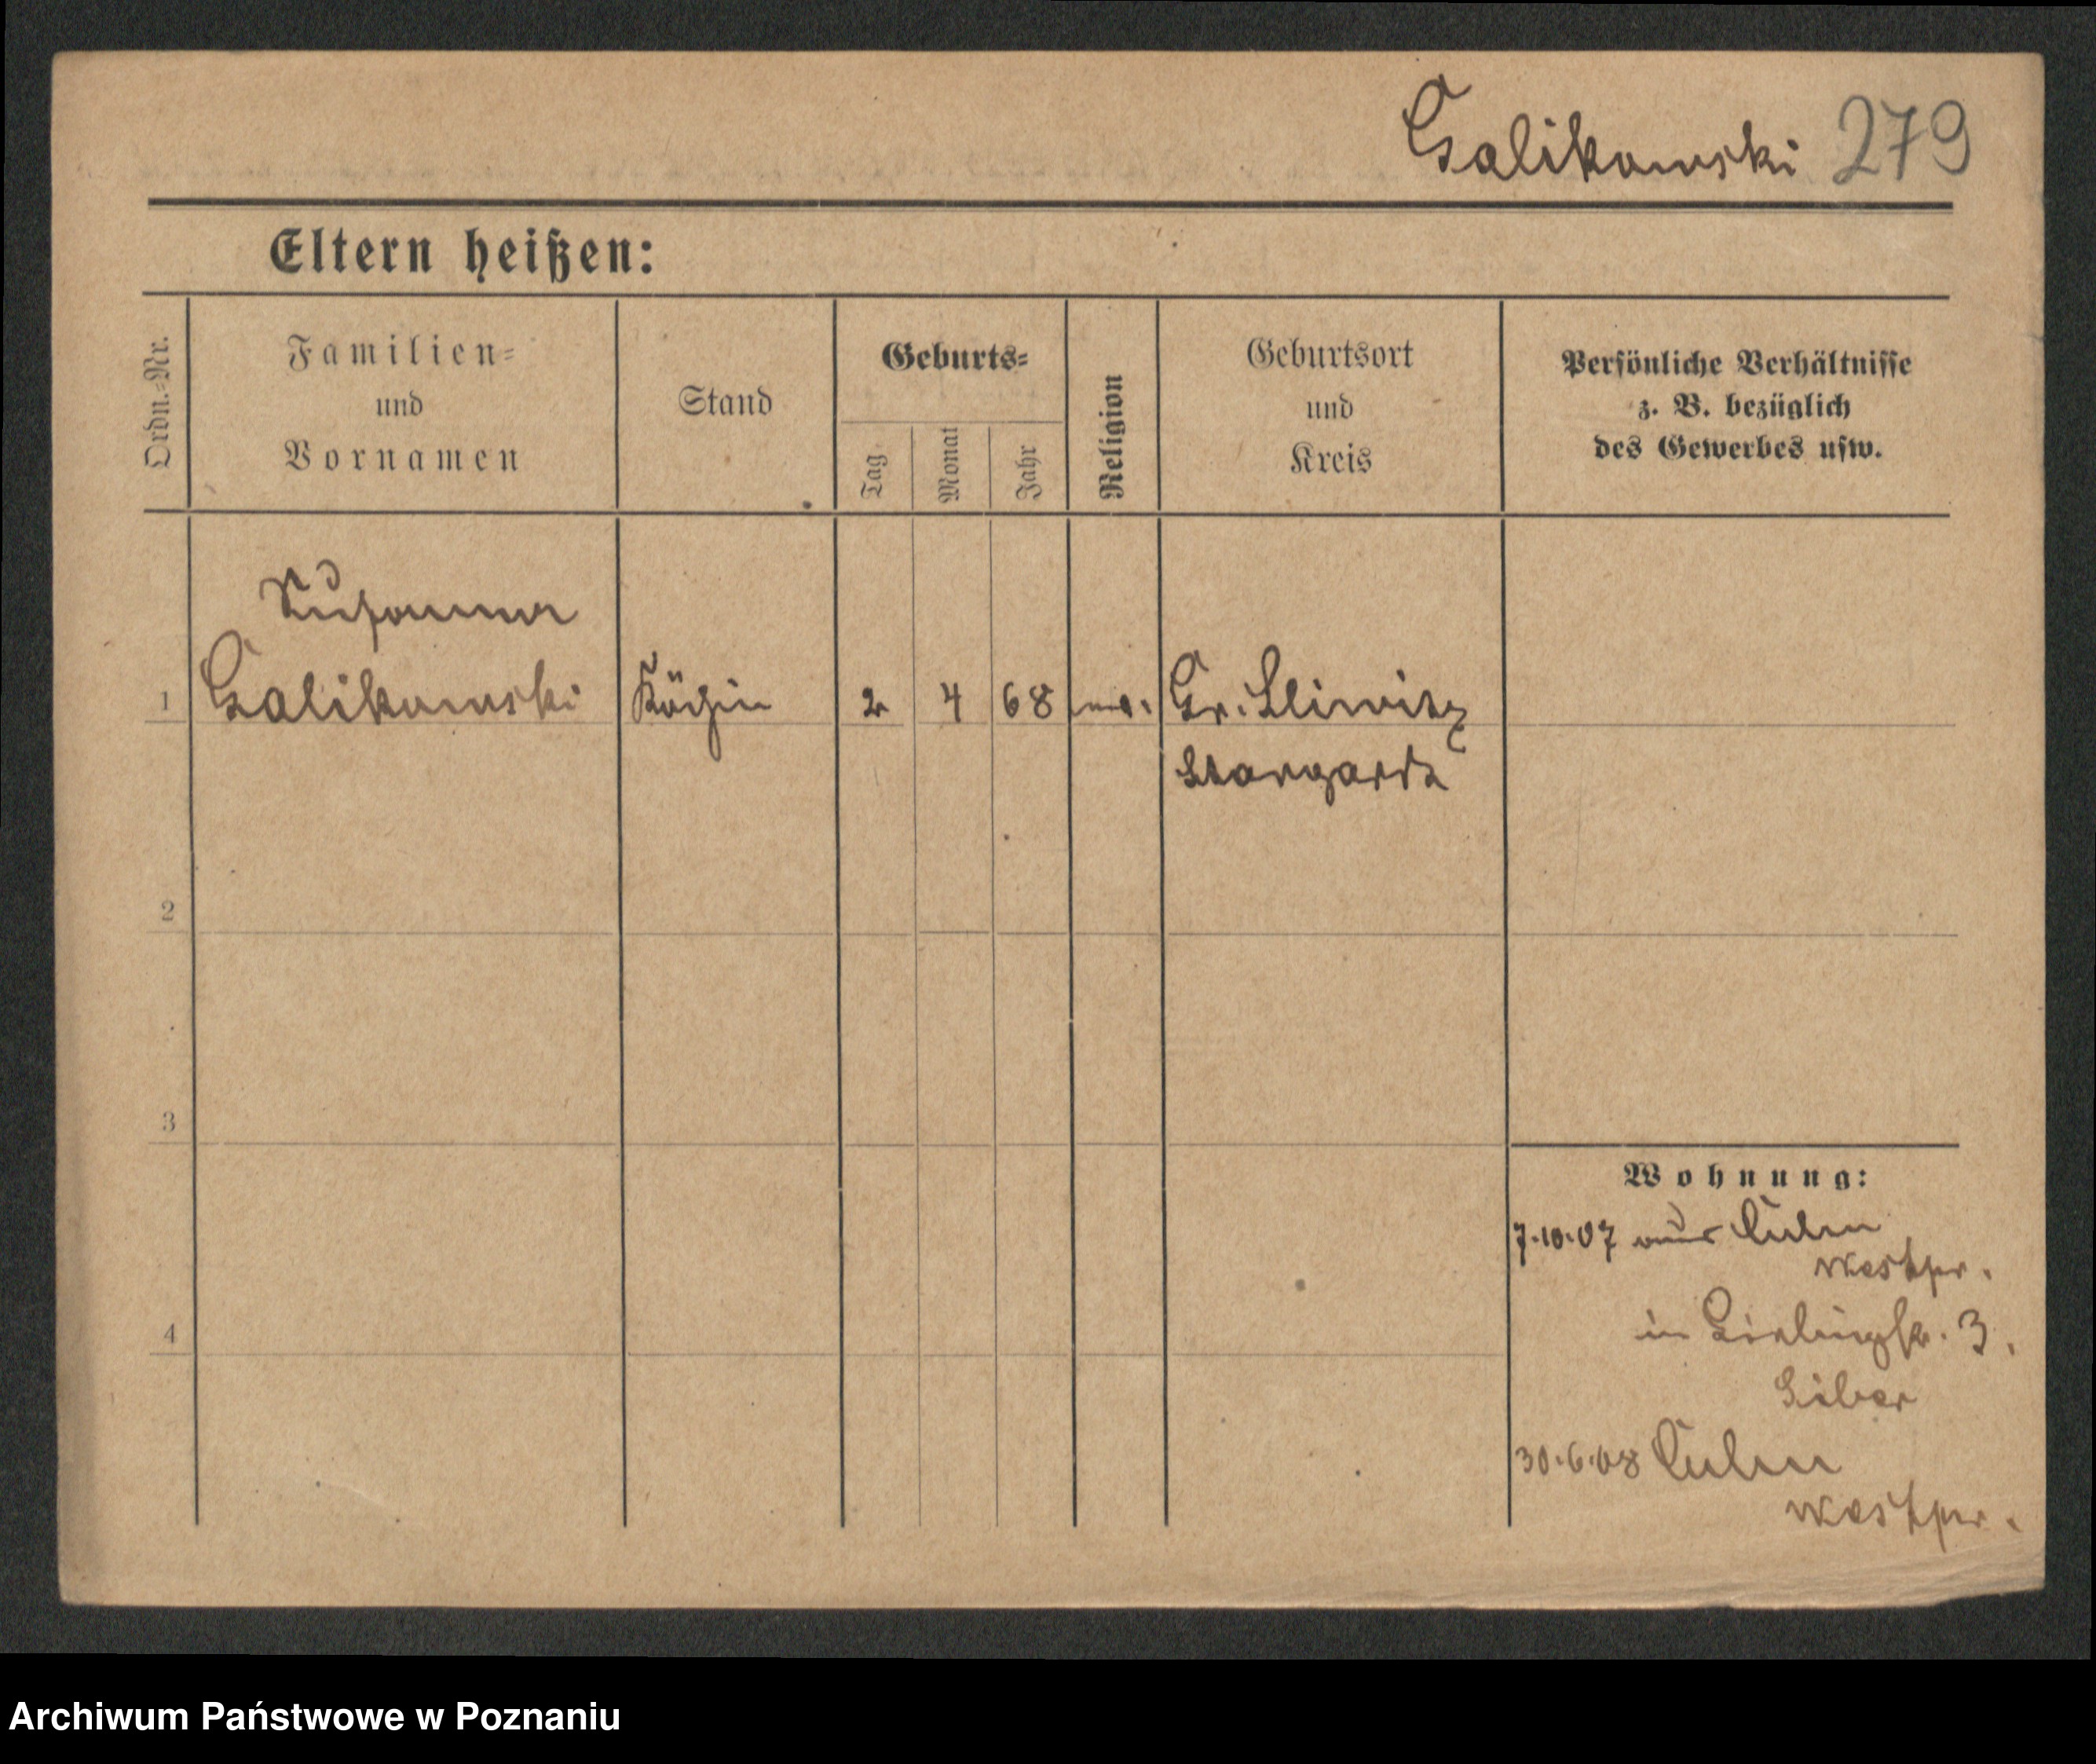 Galikowski 279
Eltern heißen:
Ordn.=Nr.
Familien=
und
Vornamen
Stand
Geburts=
Tag
Monat
Jahr
Religion
Geburtsort
und
Kreis
Persönliche Verhältnisse
z. B. bezüglich
des Gewerbes usw.
Susanna
1 Galikowski Köchin 2 4 68 Gr. Sliwitz
Stargardt
2
3
Wohnung:
7.10.07 aus Culm
Westpr.
4
in 3.
30.6.08 Culm
Westpr.
Archiwum Państwowe w Poznaniu